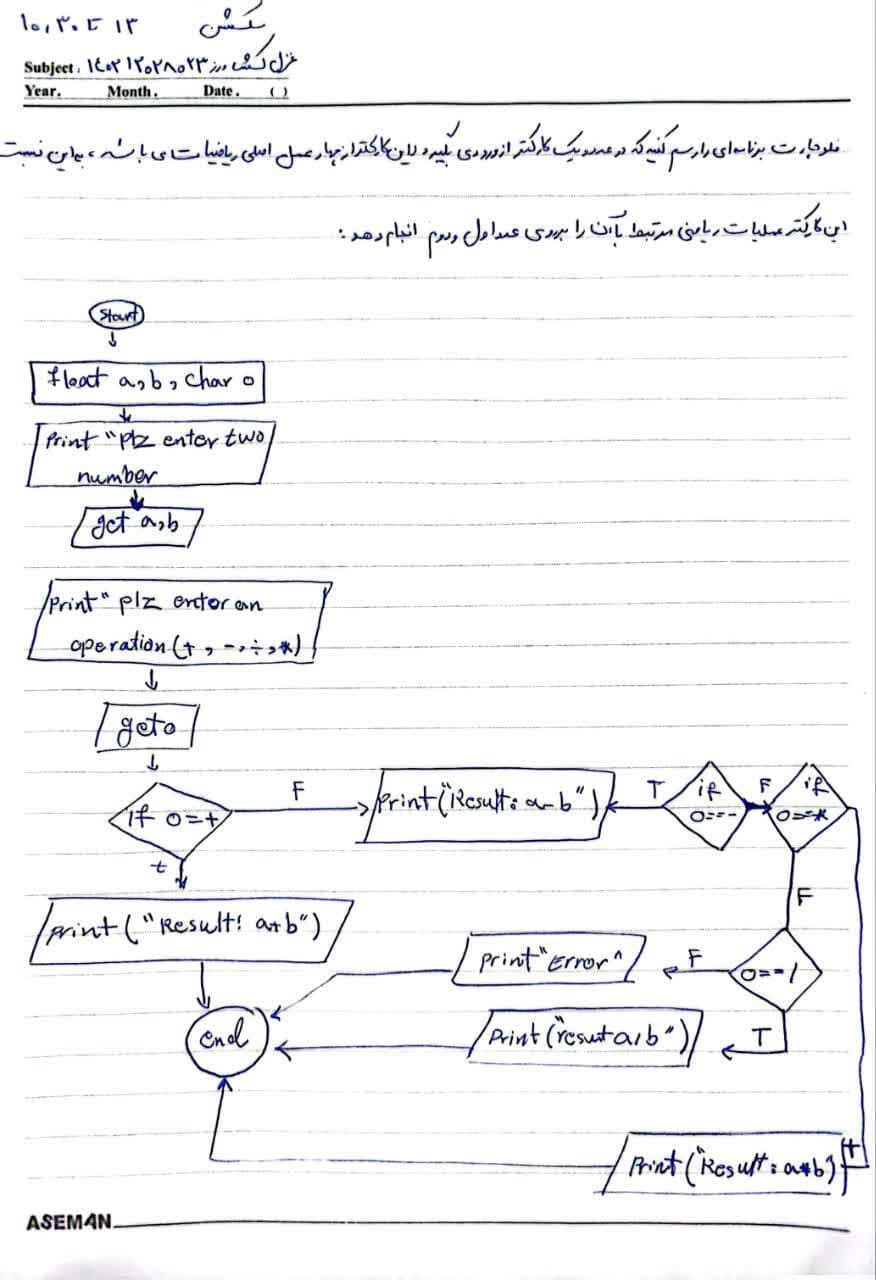 سکشن ۱۳ تا ۱۰,۳۰
Subject: غزل کشاورز ۱۴۰۲۱۲۰۲۸۰۲۳
Year. Month. Date. ( )
فلوچارت برنامه‌ای را رسم کنید که دو عدد و یک کارکتر از ورودی بگیرد و این کارکتر از چهار عمل اصلی ریاضیات می باشد، به این نسبت
این کارکتر عملیات ریاضی مرتبط با آن را برروی عدد اول و دوم انجام دهد:
Start
float a,b, char o
Print "Plz enter two
number
get a,b
Print" plz enter an
operation (+, -, ÷, *)
get o
if o=+
F
Print("Result: a-b")
T
if
o==-
F
if
o==*
t
F
print ("Result: a+b")
Print"Error"
F
o==/
end
Print("resut a/b")
T
Print("Result: a*b)
t
ASEMAN